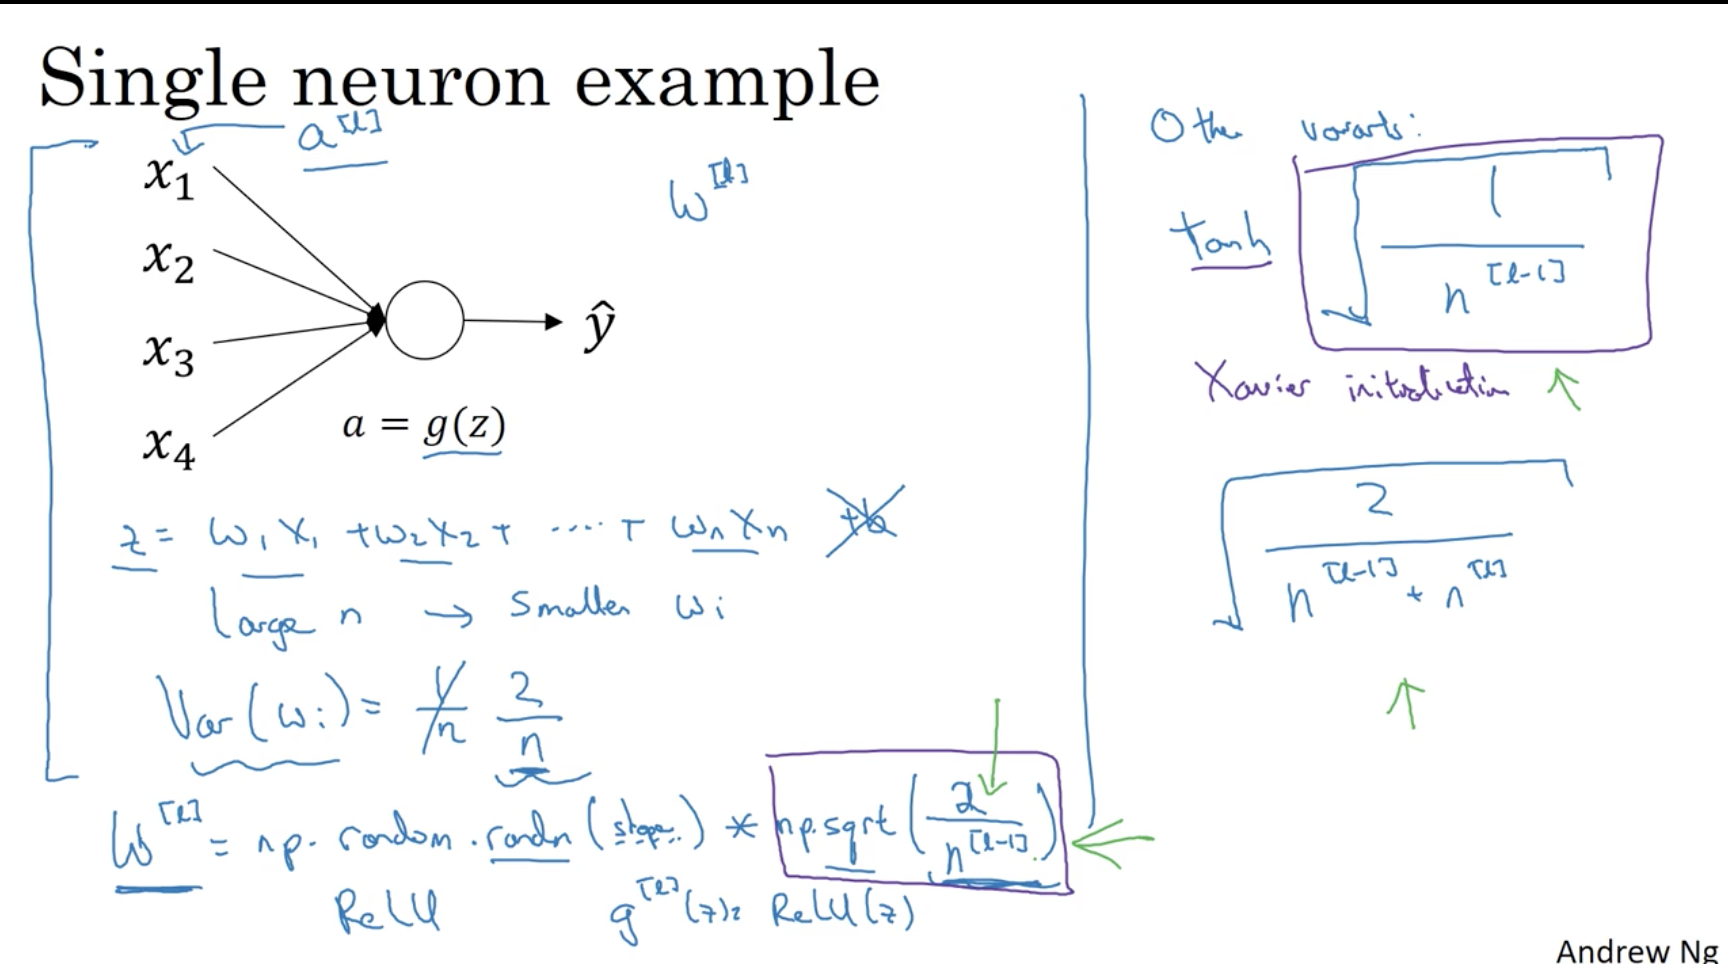 Single neuron example
a^[l]
x₁
x₂
x₃
x₄
W^[l]
ŷ
a = g(z)
z = w₁x₁ + w₂x₂ + ..... + wₙxₙ +b
Large n → Smaller wᵢ
Var(wᵢ) = 1/n 2/n
W^[l] = np.random.randn(shape) * np.sqrt(2/n^[l-1])
ReLU g^[l](z) = ReLU(z)
Other variants:
tanh √(1/n^[l-1])
Xavier initialization ↑
√(2/(n^[l-1] + n^[l]))
↑
Andrew Ng